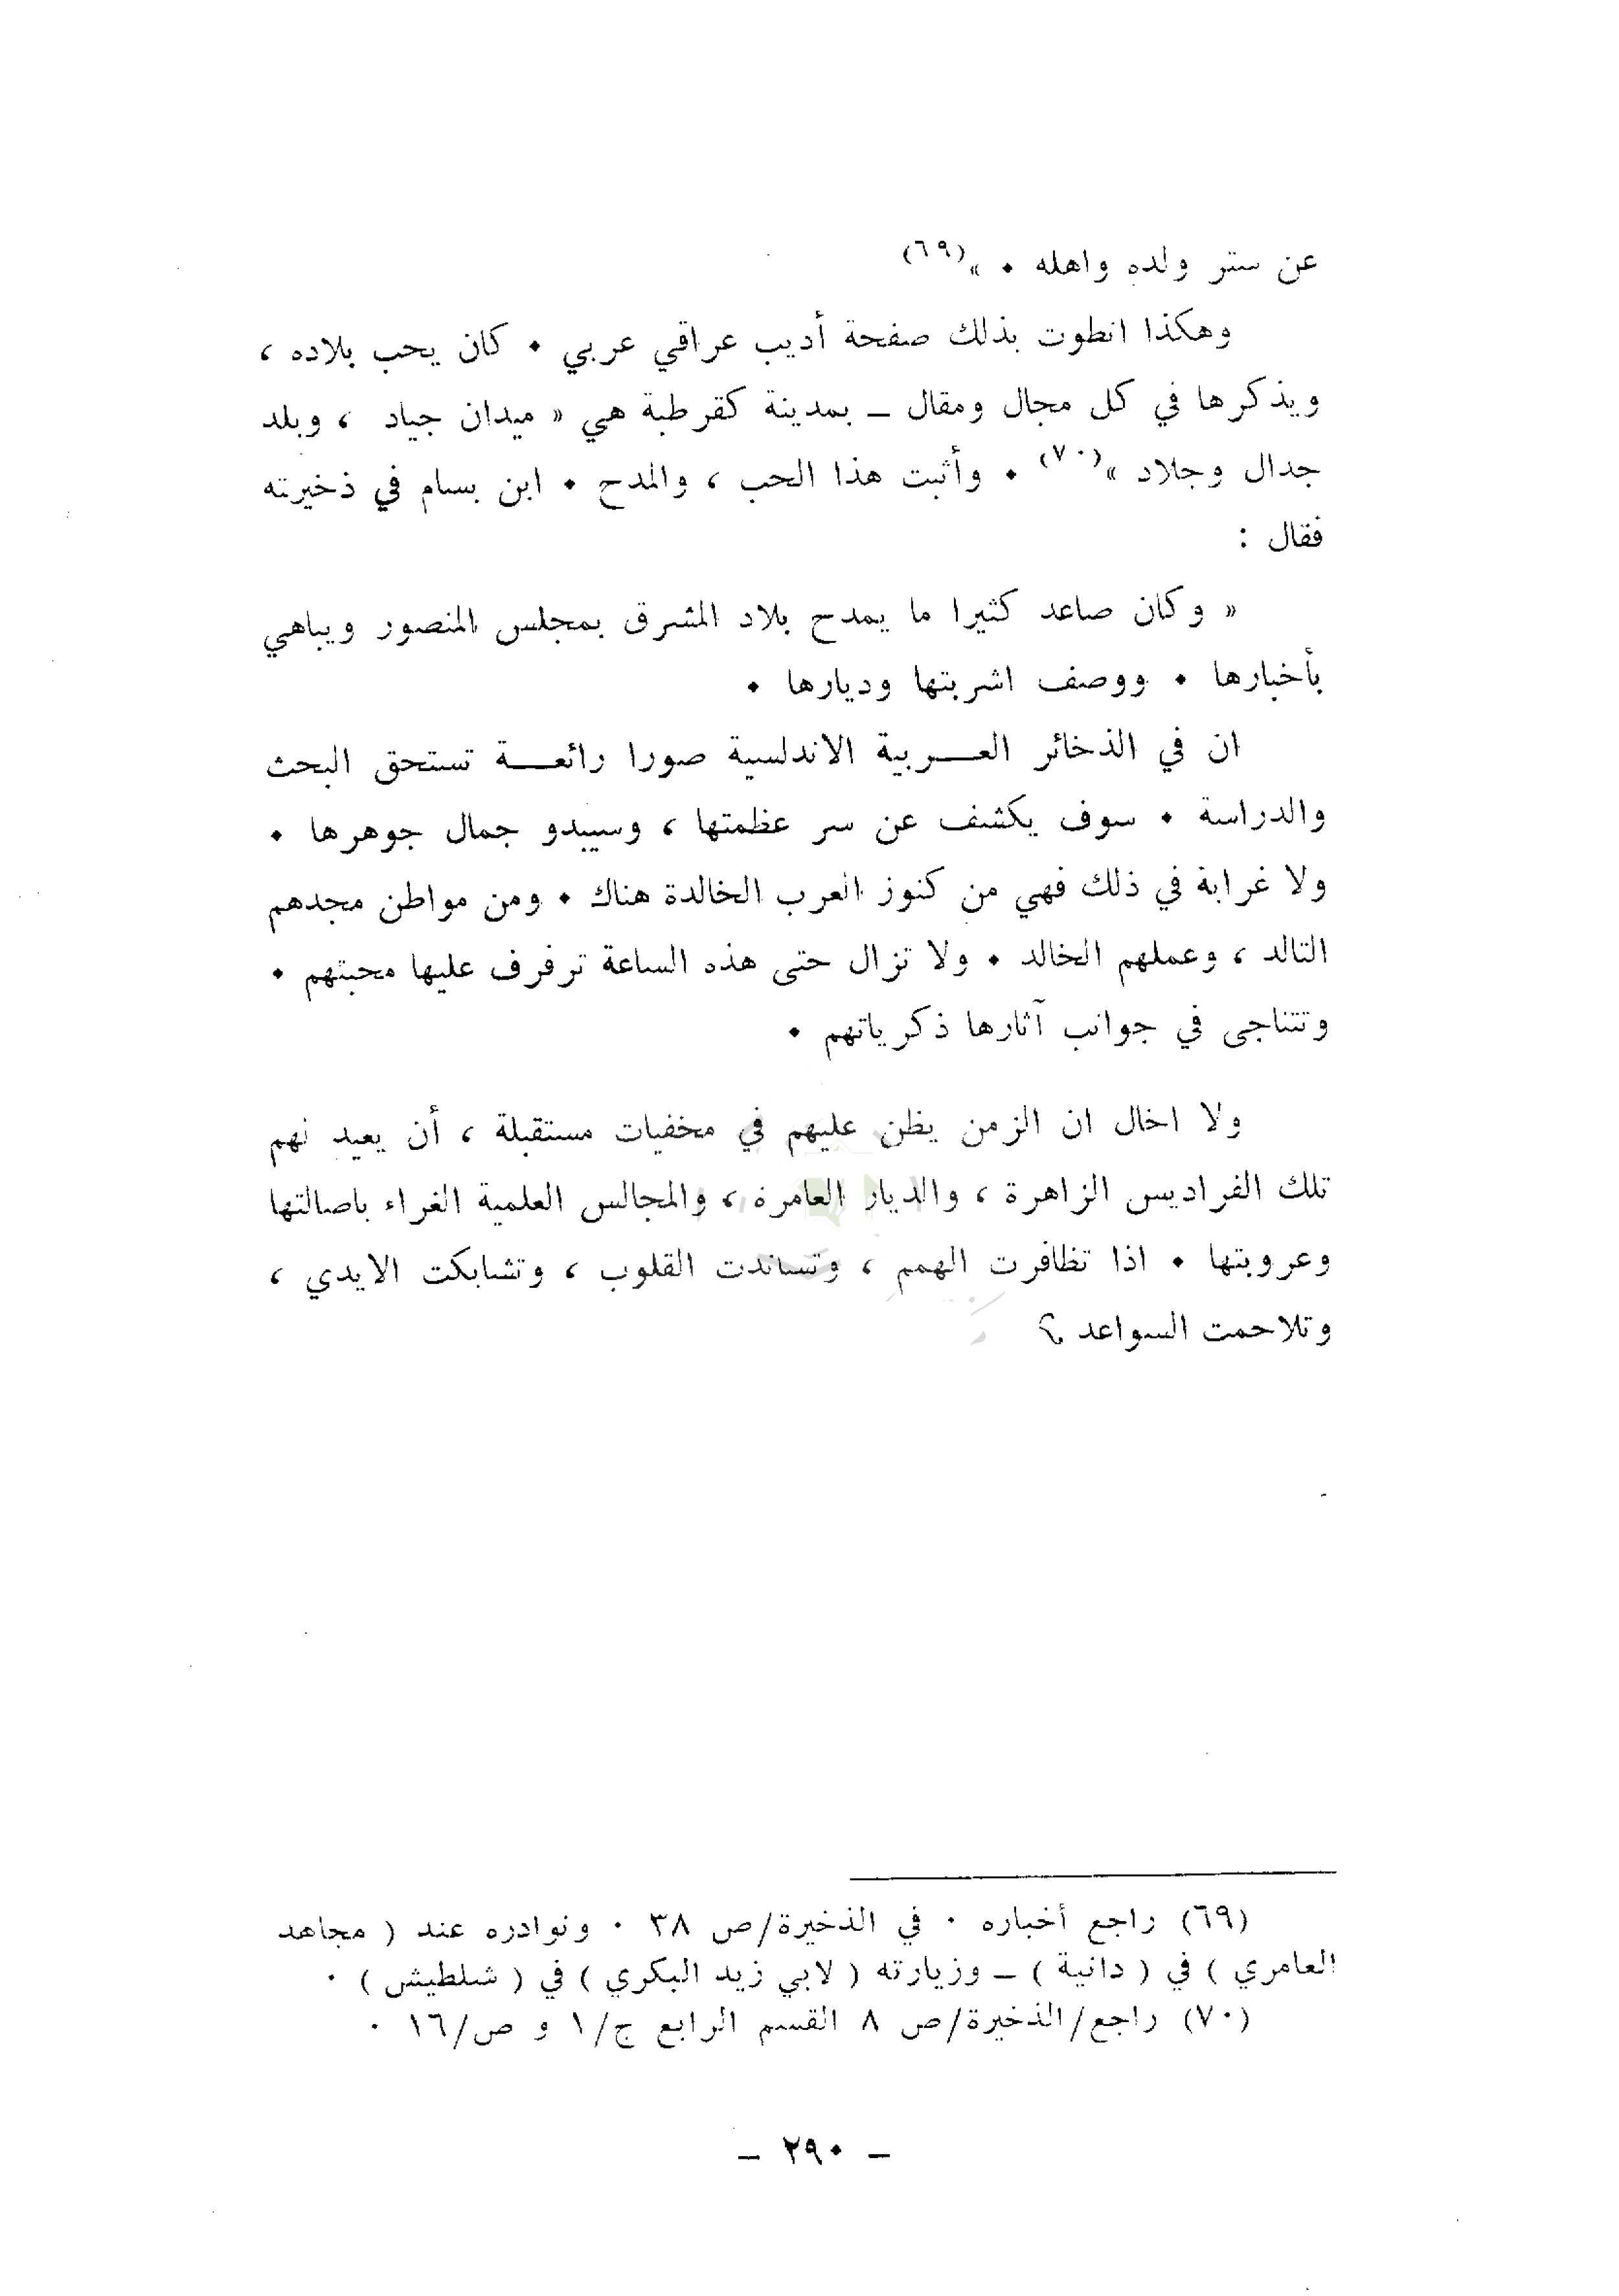 عن ستر ولده واهله . »(٦٩)
وهكذا انطوت بذلك صفحة أديب عراقي عربي . كان يحب بلاده ،
ويذكرها في كل مجال ومقال ــ بمدينة كقرطبة هي « ميدان جياد ، وبلد
جدال وجلاد »(٧٠) . وأثبت هذا الحب ، والمدح . ابن بسام في ذخيرته
فقال :
« وكان صاعد كثيرا ما يمدح بلاد المشرق بمجلس المنصور ويباهي
بأخبارها . ووصف اشربتها وديارها .
ان في الذخائر العـــربية الاندلسية صورا رائعـــة تستحق البحث
والدراسة . سوف يكشف عن سر عظمتها ، وسيبدو جمال جوهرها .
ولا غرابة في ذلك فهي من كنوز العرب الخالدة هناك . ومن مواطن مجدهم
التالد ، وعملهم الخالد . ولا تزال حتى هذه الساعة ترفرف عليها محبتهم .
وتتناجى في جوانب آثارها ذكرياتهم .
ولا اخال ان الزمن يظن عليهم في مخفيات مستقبلة ، أن يعيد لهم
تلك الفراديس الزاهرة ، والديار العامرة ، والمجالس العلمية الغراء باصالتها
وعروبتها . اذا تظافرت الهمم ، وتساندت القلوب ، وتشابكت الايدي ،
وتلاحمت السواعد ؟
(٦٩) راجع أخباره . في الذخيرة/ص ٣٨ . ونوادره عند ( مجاهد
العامري ) في ( دانية ) ــ وزيارته ( لابي زيد البكري ) في ( شلطيش ) .
(٧٠) راجع/الذخيرة/ص ٨ القسم الرابع ج/١ و ص/١٦ .
ــ ٢٩٠ ــ